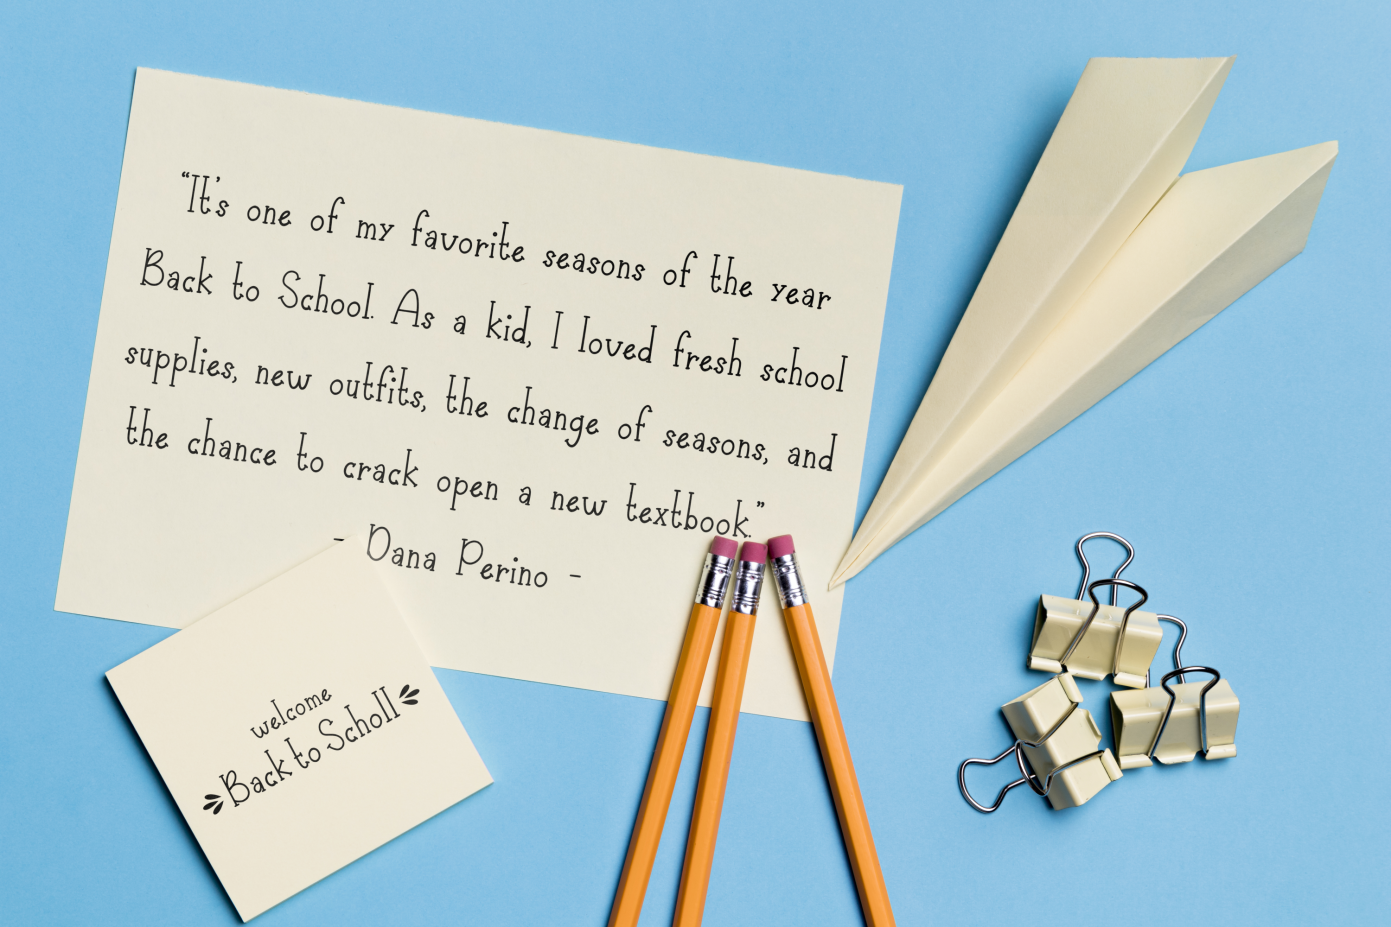 “It's one of my favorite seasons of the year
Back to School. As a kid, I loved fresh school
supplies, new outfits, the change of seasons, and
the chance to crack open a new textbook.”
- Dana Perino -
welcome
Back to Scholl